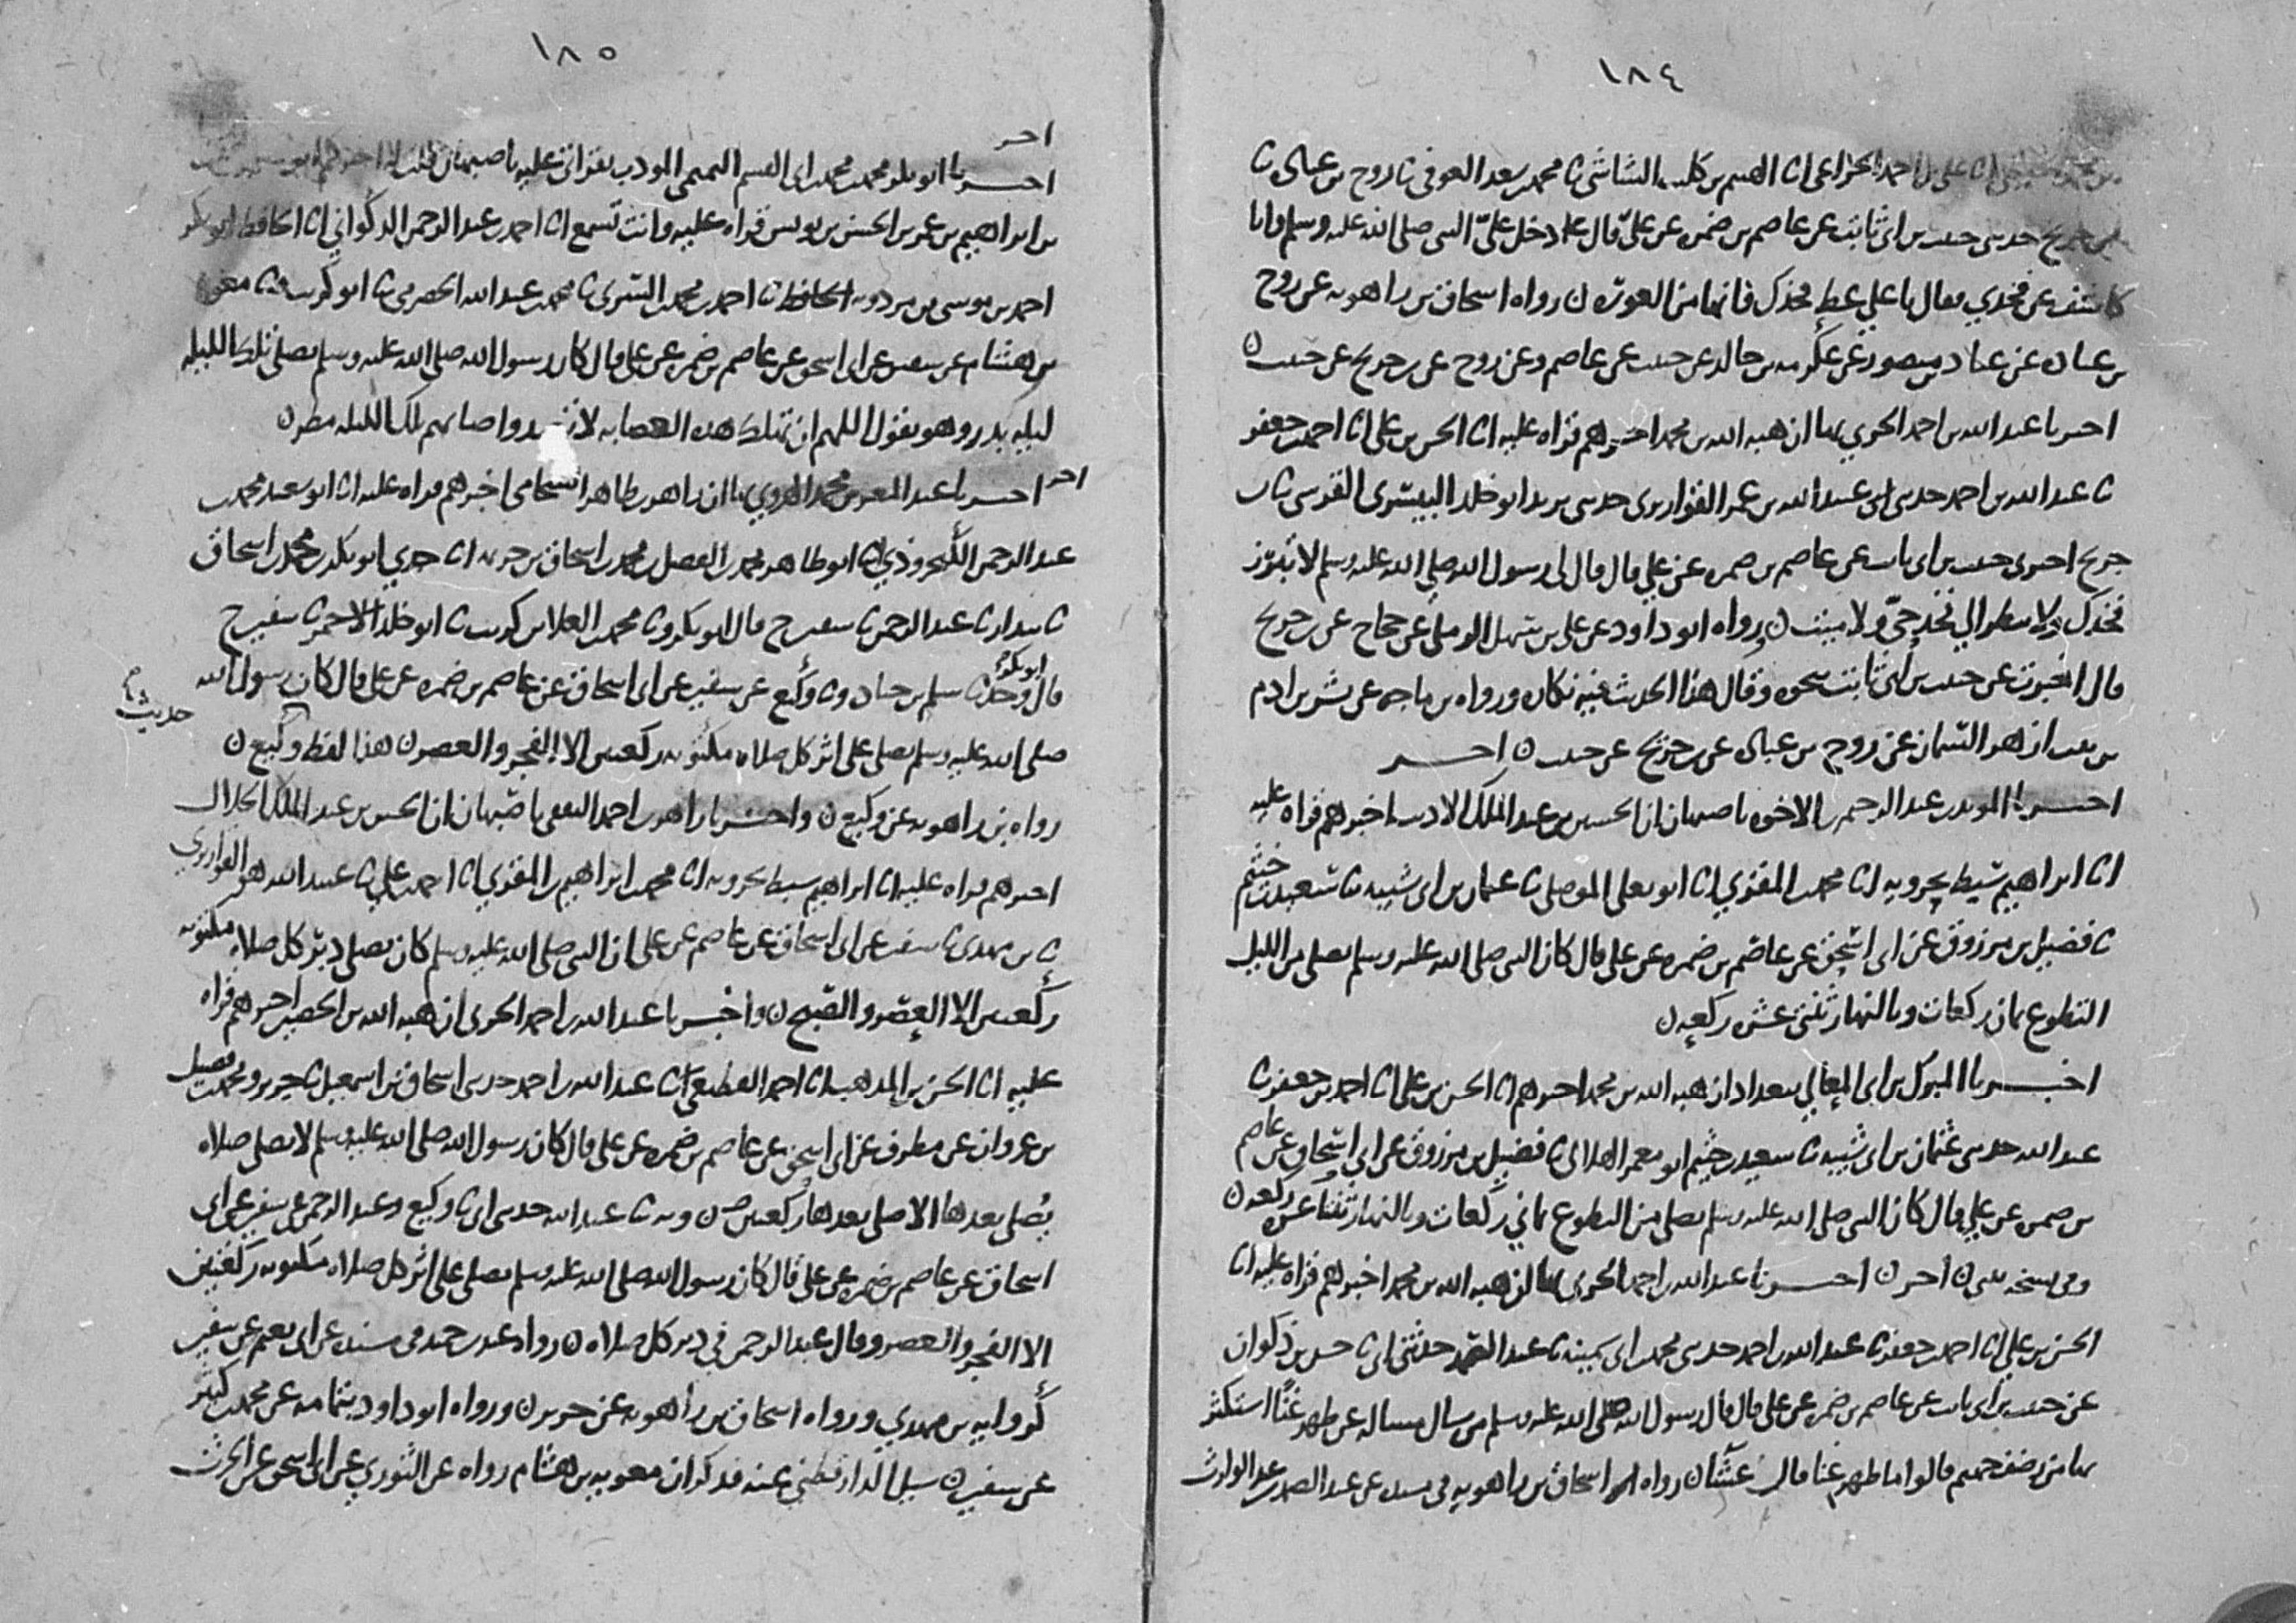 ١٨٤
علي بن احمد الخزاعي انا الهيثم بن كليب الشاشي ثنا محمد بن سعد العوفي ثنا روح بن عباده ثنا
بن جريج حدثني حبيب بن ابي ثابت عن عاصم بن ضمره عن عليّ قال دخل عليّ النبي صلى الله عليه وسلم وانا
كاشف عن فخذي فقال يا علي غط فخذك فانها من العوره ن رواه اسحاق بن راهويه عن روح
بن عباده عن عباد بن منصور عن عكرمه بن خالد عن حبيب عن عاصم وعن روح عن بن جريج عن حبيب ن
اخبرنا عبد الله بن احمد الحربي بها ان هبه الله بن محمد اخبرهم قراه عليه انا الحسن بن علي انا احمد بن جعفر
ثنا عبد الله بن احمد حدثني عبيد الله بن عمر القواريري حدثني يزيد ابو خلد البيسري القرشي ثنا بن
جريج اخبرني حبيب بن ابي ثابت عن عاصم بن ضمره عن علي قال قال لي رسول الله صلى الله عليه وسلم لا تبرز
فخذك ولا تنظر الي فخذ حيّ ولا ميت ن رواه ابو داود عن علي بن سهل الرملي عن حجاج عن بن جريج
قال اخبرت عن حبيب بن ابي ثابت بنحوه وقال هذا الحديث فيه نكاره ورواه بن ماجه عن بشر بن ادم
بن بنت ازهر السمان عن روح بن عباده عن بن جريج عن حبيب ن اخر
اخبرنا المويد بن عبد الرحيم بن الاخوه باصبهان ان الحسين بن عبد الملك الاديب اخبرهم قراه عليه
انا ابراهيم سبط بحرويه انا محمد بن المقري انا ابو يعلى الموصلي ثنا عثمان بن ابي شيبه ثنا سعيد بن خثيم
ثنا فضيل بن مرزوق عن ابي اسحق عن عاصم بن ضمره عن علي قال كان النبي صلى الله عليه وسلم يصلي من الليل
التطوع ثمان ركعات وبالنهار ثنتي عشره ركعه ن
اخبرنا المبرك بن ابي المعالي ببغداد ان هبه الله بن محمد اخبرهم انا الحسن بن علي انا احمد بن جعفر ثنا
عبد الله حدثني عثمان بن ابي شيبه ثنا سعيد بن خثيم ابو معمر الهلالي ثنا فضيل بن مرزوق عن ابي اسحاق عن عاصم
بن ضمره عن علي قال كان النبي صلى الله عليه وسلم يصلي من التطوع ثماني ركعات وبالنهار ثنتا عشره ركعه ن
وفي نسخه ن اخر ن اخبرنا عبد الله بن احمد الحربي بها ان هبه الله بن محمد اخبرهم قراه عليه انا
الحسن بن علي انا احمد بن جعفر ثنا عبد الله بن احمد حدثني محمد بن ابي سمينه ثنا عبد الصمد حدثني ابي ثنا حسن بن ذكوان
عن حبيب بن ابي ثابت عن عاصم بن ضمره عن علي قال قال رسول الله صلى الله عليه وسلم من سال مساله عن ظهر غنًا استكثر
بها من رضف جهنم قالوا ما ظهر غنا قال عشاء ن رواه اسحاق بن راهويه في مسنده عن عبد الصمد بن عبد الوارث
١٨٥
اخر
اخبرنا ابو بكر محمد بن محمد بن ابي القسم التميمي المودب بقراتي عليه باصبهان قلت له اخبركم ابو
بن ابراهيم بن عمر بن الحسن بن يونس قراه عليه وانت تسمع انا احمد بن عبد الرحمن الذكواني انا الحافظ ابو بكر
احمد بن موسى بن مردويه الحافظ ثنا احمد بن محمد السري ثنا محمد بن عبد الله الحضرمي ثنا ابو كريب ثنا معويه
بن هشام عن سفين عن ابي اسحق عن عاصم بن ضمره عن علي قال كان رسول الله صلى الله عليه وسلم يصلي تلك الليله
ليله بدر وهو يقول اللهم ان تهلك هذه العصابه لا تعبد واصابهم تلك الليله مطر ن
اخر اخبرنا عبد المعز بن محمد الهروي بها ان زاهر بن طاهر الشحامي اخبرهم قراه عليه انا ابو سعيد محمد بن
عبد الرحمن الكنجروذي انا ابو طاهر محمد بن الفضل بن محمد بن اسحاق بن خزيمه انا جدي ابو بكر محمد بن اسحاق
ثنا بندار ثنا عبد الرحمن ثنا سفين ح قال ابو بكر وثنا محمد بن العلا بن كريب ثنا ابو خلد الاحمر ثنا سفين ح
قال ابو بكر وحدثنا سلم بن جناده ثنا وكيع عن سفين عن ابي اسحاق عن عاصم بن ضمره عن علي قال كان رسول الله
صلى الله عليه وسلم يصلي على اثر كل صلاه مكتوبه ركعتين الا الفجر والعصر ن هذا لفظ وكيع ن
رواه بن راهويه عن وكيع ن واخبرنا زاهر بن احمد الثقفي باصبهان ان الحسين بن عبد الملك الخلال
اخبرهم قراه عليه انا ابراهيم سبط بحرويه انا محمد بن ابراهيم بن المقري انا احمد بن علي ثنا عبيد الله هو القواريري
ثنا بن مهدي ثنا سفين عن ابي اسحاق عن عاصم عن علي ان النبي صلى الله عليه وسلم كان يصلي دبر كل صلاه مكتوبه
ركعتين الا العصر والصبح ن واخبرنا عبد الله بن احمد الحربي ان هبه الله بن الحصين اخبرهم قراه
عليه انا الحسن بن المذهب انا احمد القطيعي ثنا عبد الله بن احمد حدثني اسحاق بن اسمعيل ثنا جرير ومحمد بن فضيل
بن غزوان عن مطرف عن ابي اسحق عن عاصم بن ضمره عن علي قال كان رسول الله صلى الله عليه وسلم لا يصلي صلاه
يُصلى بعدها الا صلى بعدها ركعتين ن وبه ثنا عبد الله حدثني ابي ثنا وكيع وعبد الرحمن عن سفين عن ابي
اسحاق عن عاصم بن ضمره عن علي قال كان رسول الله صلى الله عليه وسلم يصلي على اثر كل صلاه مكتوبه ركعتين
الا الفجر والعصر وقال عبد الرحمن في دبر كل صلاه ن رواه عبد بن حميد في مسنده عن ابي نعيم عن سفين
كروايه بن مهدي ورواه اسحاق بن راهويه عن جرير ن ورواه ابو داود بتمامه عن محمد بن كثير
عن سفين ن سيل الدارقطني عنه فذكر ان معويه بن هشام رواه عن الثوري عن ابي اسحق عن الحرث